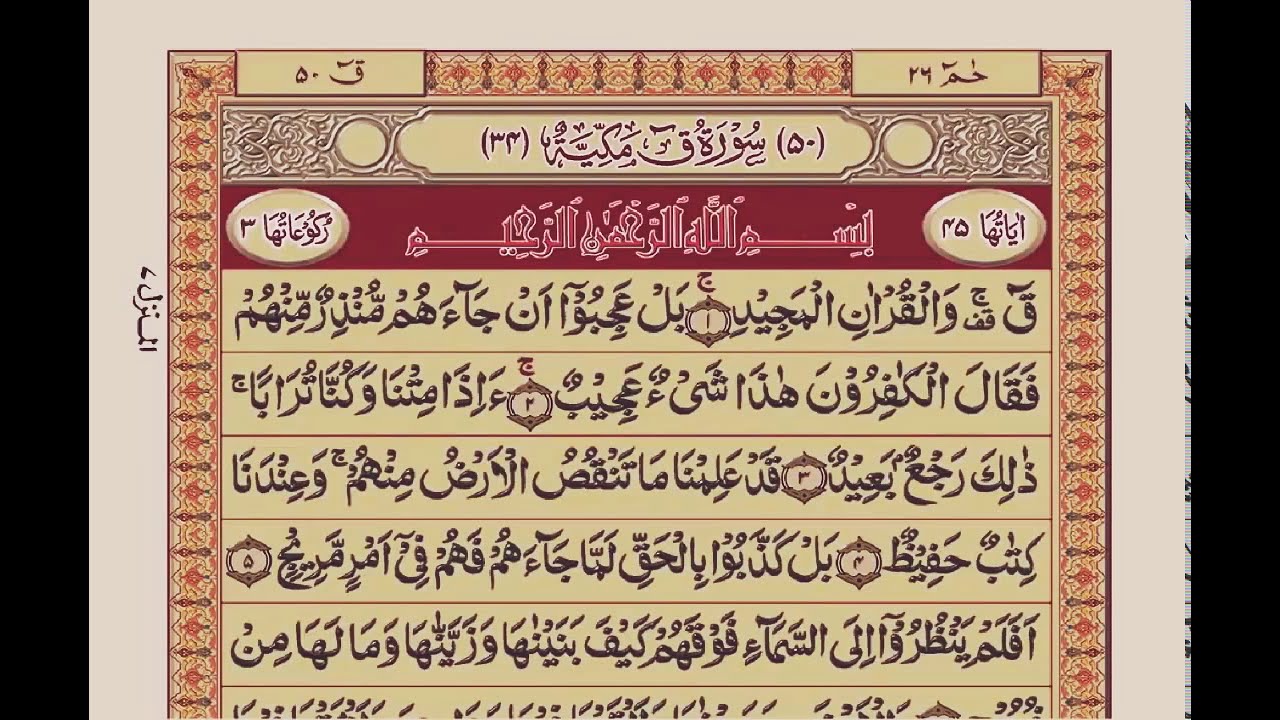 حٰمٓ ۲۶
قٓ ۵۰
(۵۰) سُوْرَةُ قٓ مَكِّيَّةٌ (۳۴)
اٰيَاتُهَا ۴۵
بِسْمِ اللّٰهِ الرَّحْمٰنِ الرَّحِيْمِ
رُكُوْعَاتُهَا ۳
قٓ ۚ قف وَالْقُرْاٰنِ الْمَجِيْدِ ۚ ﴿۱﴾ بَلْ عَجِبُوْۤا اَنْ جَآءَهُمْ مُّنْذِرٌ مِّنْهُمْ
فَقَالَ الْكٰفِرُوْنَ هٰذَا شَیْءٌ عَجِيْبٌ ۚ ﴿۲﴾ ءَاِذَا مِتْنَا وَكُنَّا تُرَابًا ۚ
ذٰلِكَ رَجْعٌۢ بَعِيْدٌ ﴿۳﴾ قَدْ عَلِمْنَا مَا تَنْقُصُ الْاَرْضُ مِنْهُمْ ۚ وَعِنْدَنَا
كِتٰبٌ حَفِيْظٌ ﴿۴﴾ بَلْ كَذَّبُوْا بِالْحَقِّ لَمَّا جَآءَهُمْ فَهُمْ فِیْۤ اَمْرٍ مَّرِيْجٍ ﴿۵﴾
اَفَلَمْ يَنْظُرُوْۤا اِلَى السَّمَآءِ فَوْقَهُمْ كَيْفَ بَنَيْنٰهَا وَزَيَّنّٰهَا وَمَا لَهَا مِنْ
المنزل ۷